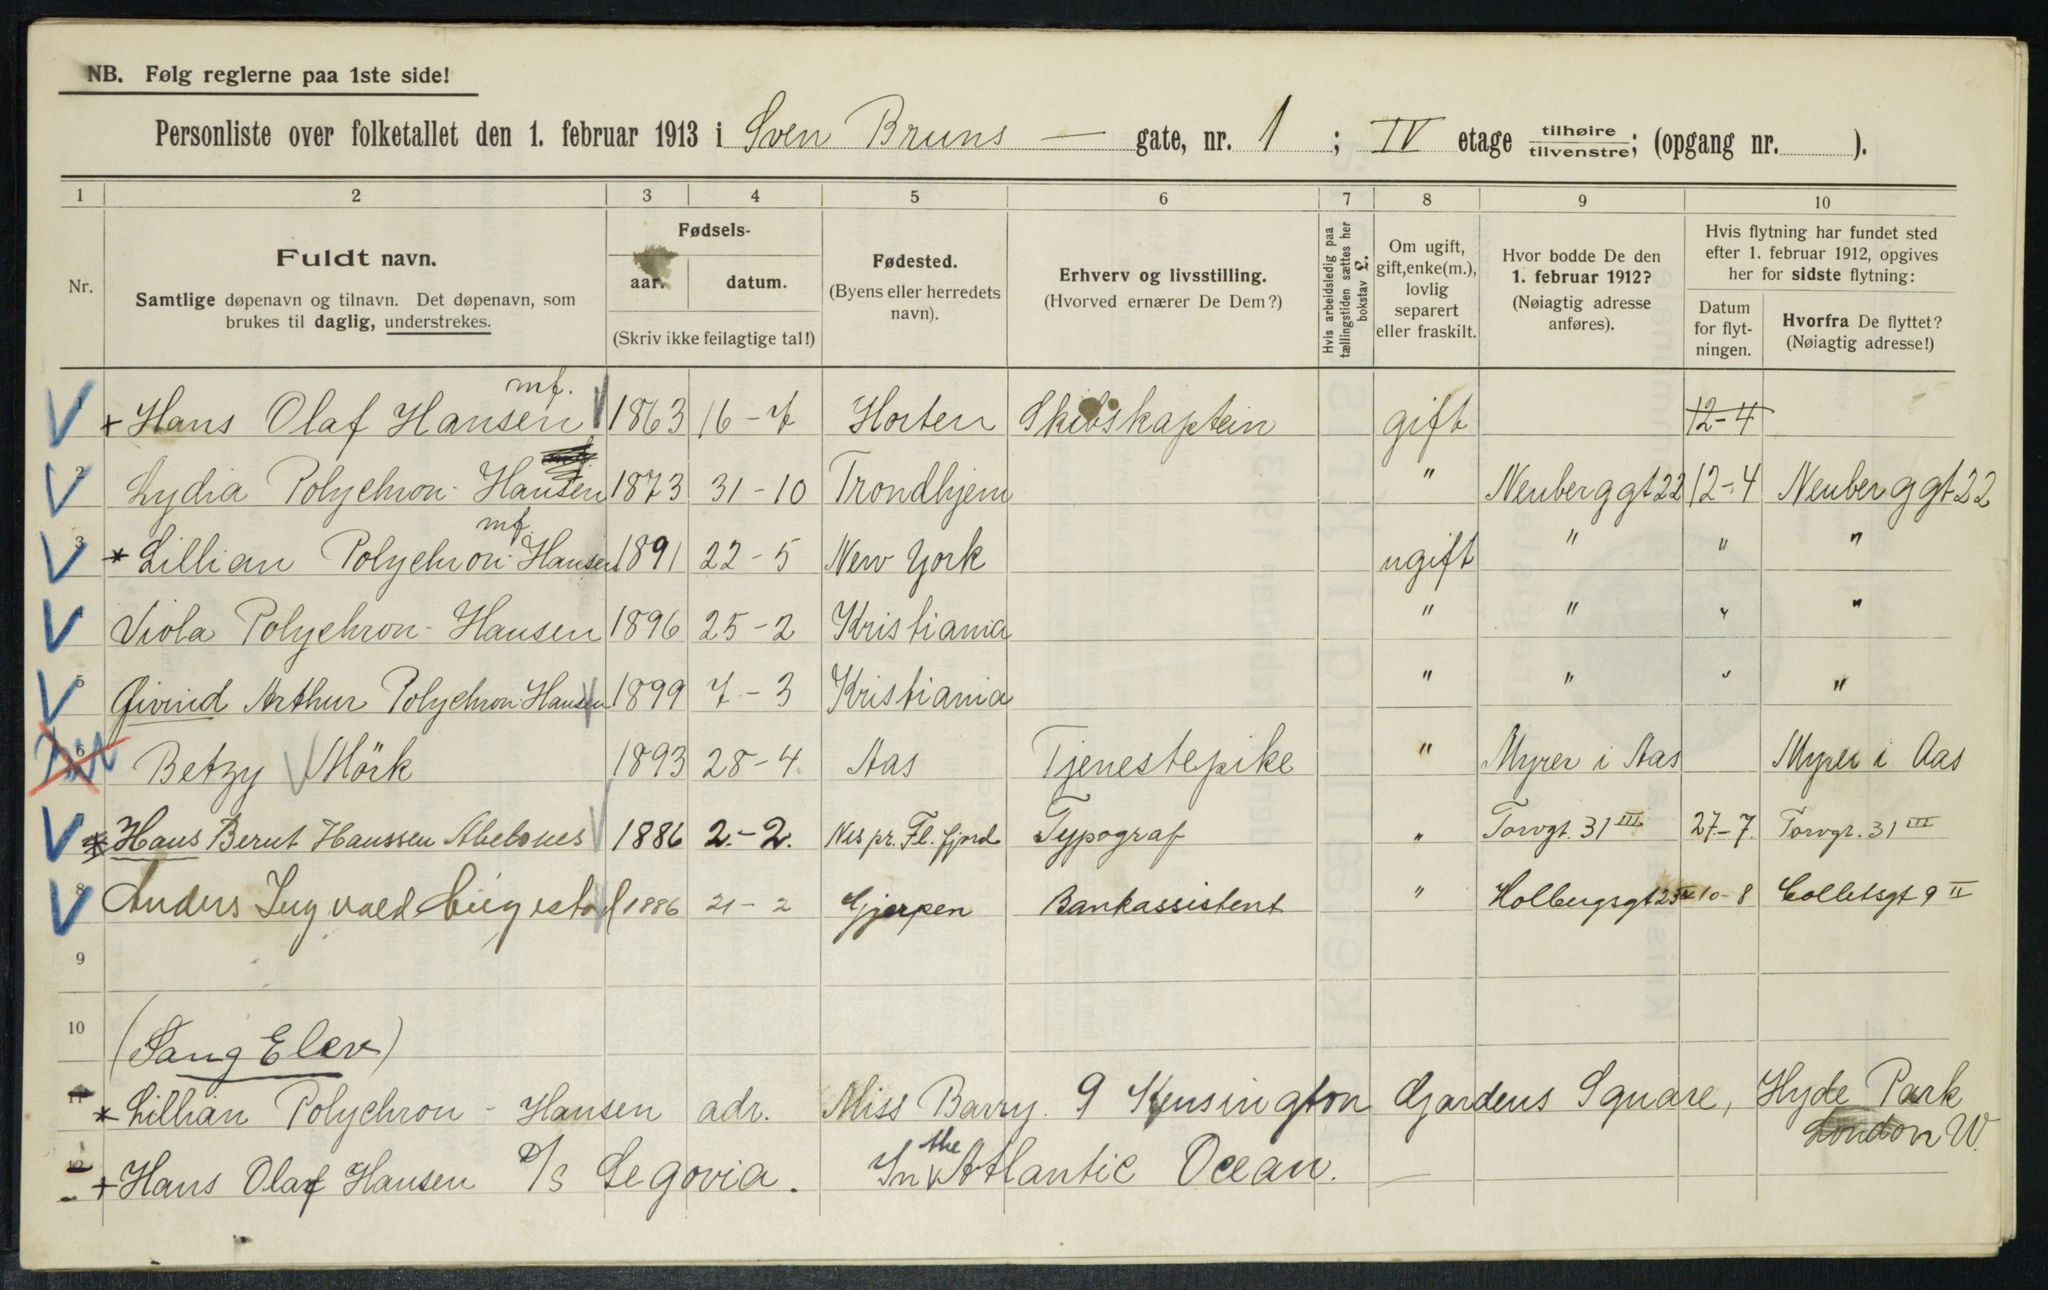 NB. Følg reglerne paa 1ste side!
Personliste over folketallet den 1. februar 1913 i Sven Bruns — gate, nr. 1 ; IV etage tilhøire / tilvenstre; (opgang nr. ).
1 2 3 4 5 6 7 8 9 10
Nr.
Fuldt navn.
Samtlige døpenavn og tilnavn. Det døpenavn, som
brukes til daglig, understrekes.
Fødsels-
aar. datum.
(Skriv ikke feilagtige tal!)
Fødested.
(Byens eller herredets
navn).
Erhverv og livsstilling.
(Hvorved ernærer De Dem?)
Hvis arbeidsledig paa
tællingstiden sættes her
bokstav L.
Om ugift,
gift, enke(m.),
lovlig
separert
eller fraskilt.
Hvor bodde De den
1. februar 1912?
(Nøiagtig adresse
anføres).
Hvis flytning har fundet sted
efter 1. februar 1912, opgives
her for sidste flytning:
Datum
for flyt-
ningen.
Hvorfra De flyttet?
(Nøiagtig adresse!)
mf.
+ Hans Olaf Hansen 1863 16-7 Horten Skibskaptein gift 12-4
2 Lydia Polychron-Hansen 1873 31-10 Trondhjem " Neuberggt 22 12-4 Neuberggt 22
mf.
3 * Lillian Polychron-Hansen 1891 22-5 New York ugift " " "
Viola Polychron-Hansen 1896 25-2 Kristiania " " " "
5 Øivind Arthur Polychron-Hansen 1899 7-3 Kristiania " " " "
6 Betzy Mörk 1893 28-4 Aas Tjenestepike " Myrer i Aas Myrer i Aas
* Hans Bernt Hanssen Abelsnes 1886 2.-2. Nes pr. Fl. fjord Typograf " Torvgt. 31 III 27-7. Torvgt. 31 III
8 Anders Ingvald 1886 21-2 Gjerpen Bankassistent " Holbergsgt 10-8 Colletsgt 9 II
9
10
(Sang Elev)
11 * Lillian Polychron-Hansen adr. Miss Barry. 9 Kensington Gardens Square, Hyde Park
London W.
12 + Hans Olaf Hansen D/S Segovia. In the Atlantic Ocean. —